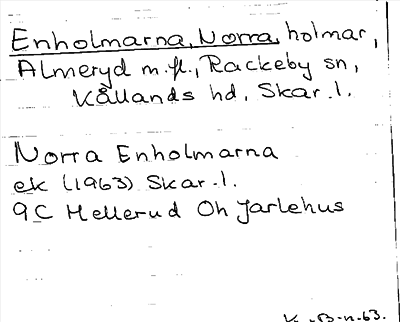 Enholmarna, Norra, holmar,
Almeryd m.fl., Rackeby sn,
Kållands hd, Skar.l.
Norra Enholmarna
ek (1963) Skar.l.
9C Hellerud Oh Jarlehus